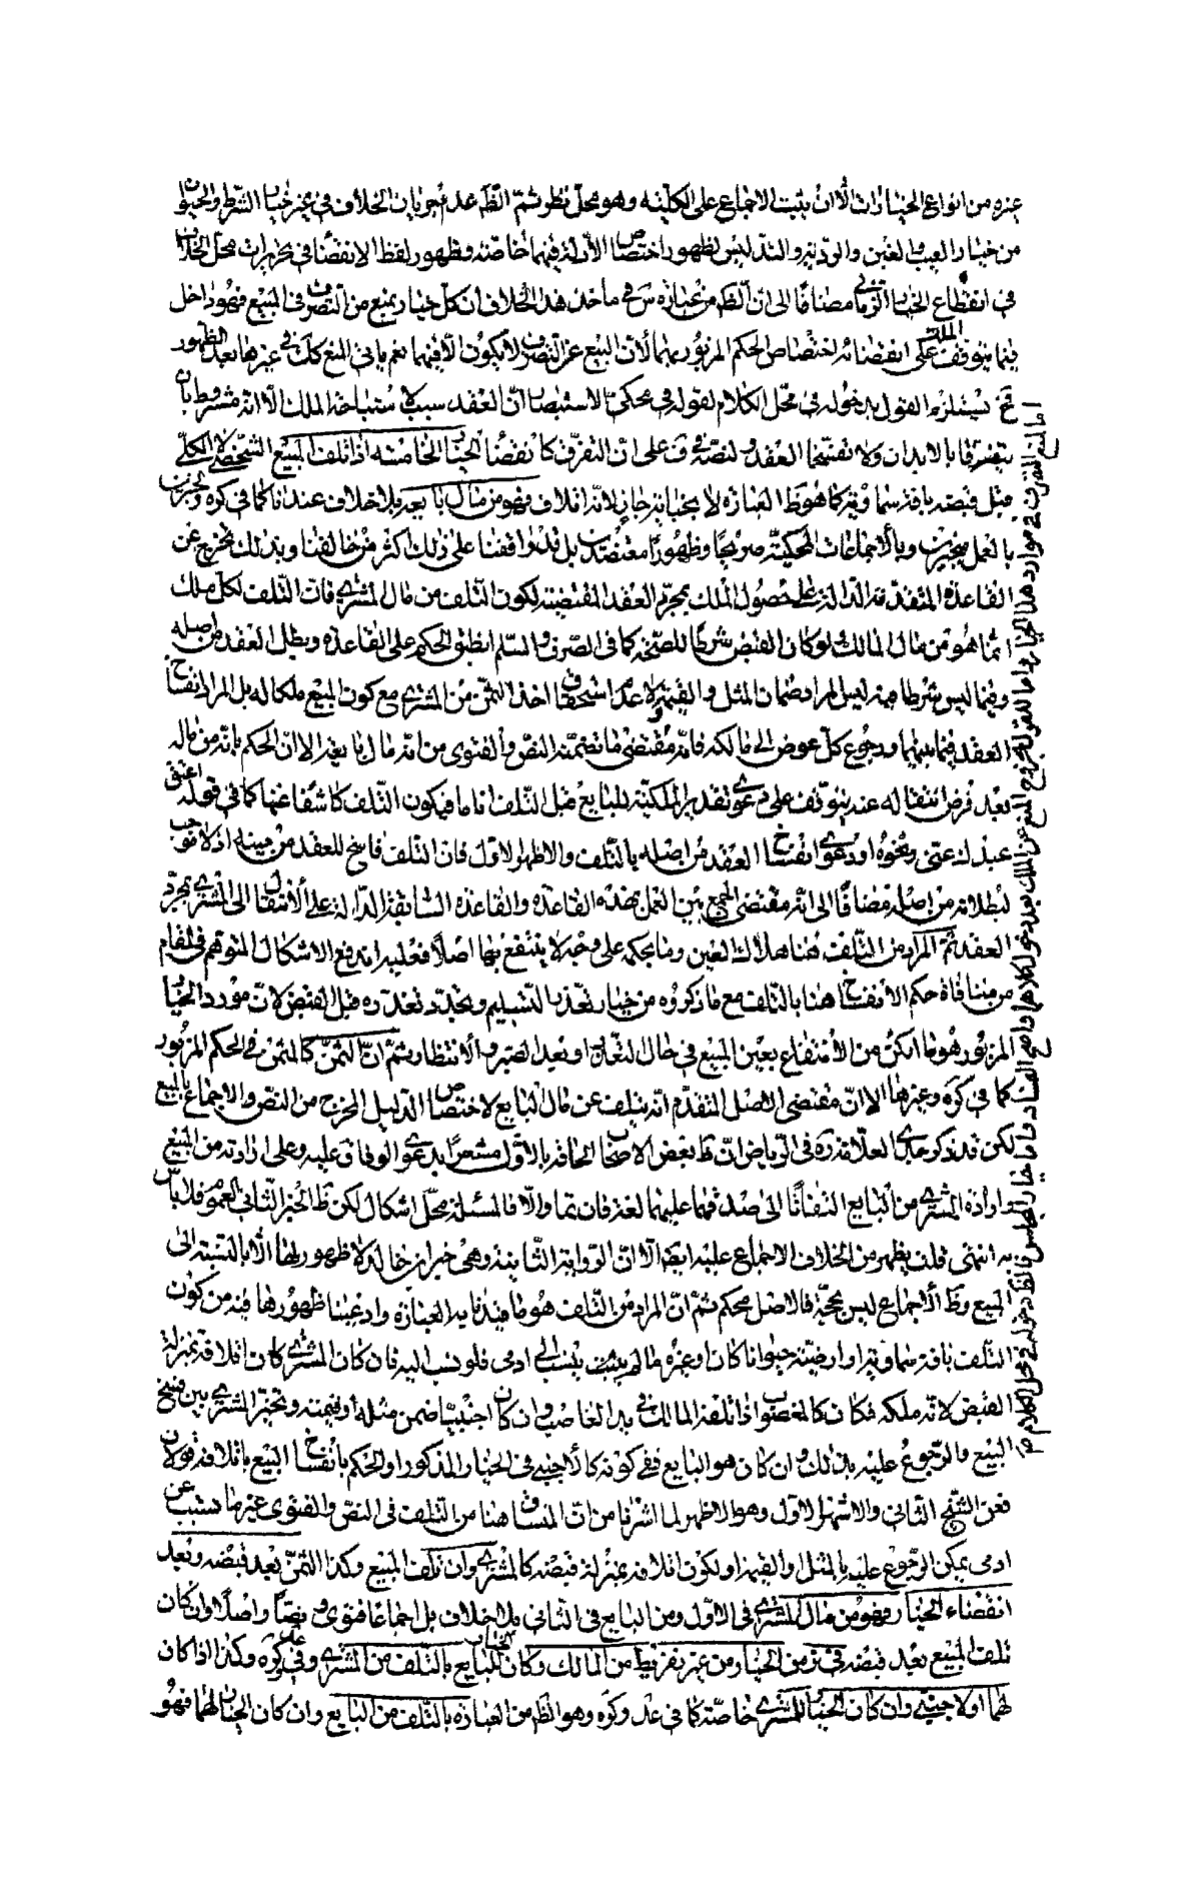 غيره من انواع الخيارات الّا ان يثبت الاجماع على الكليّة وهو محلّ نظر ثمّ الظّ عدم جريان الخلاف في غير خيار الشرط والحيوان
من خيار العيب والغبن والرؤية والتدليس لظهور اختصاص الأدلة فيهما خاصّة وظهور لفظ الانقضاء في تحريرات محلّ الخلاف
في انقطاع الخيار الزماني مضافًا الى انّ الظّ من عبارة في ماخذ هذا الخلاف ان كل خيار يمنع من التصرف في المبيع فهو داخل
فيما يتوقف الملك على انقضائه لاختصاص الحكم المزبور بهما لأن المنع عن التصرف لا يكون الّا فيهما نعم ياتي المنع كك في غيرها بعد الظهور
تستلزم القول بدخوله في محل الكلام لقوله في محكيّ الاستبصار انّ العقد سبب لاستباحة الملك الّا انّه مشروط بان
يتفرقا بالابدان ولا يفسخا العقد ونصّه على ان التفرق كانقضاء الخيار الخامسة اذا تلف المبيع الشخصي لا الكلّي
قبل قبضه بافة سماوية كما هو ظ العبارة لا بجناية جان لانّه اتلاف فهو من مال بايعه بلا خلاف عندنا كما في كره والخبران
بالعمل منجبران وبالاجماعات المحكيّة صريحًا وظهورًا معتضدان بل قد وافقنا على ذلك اكثر من خالفنا وبذلك نخرج عن
القاعدة المتقدمة الدالة على حصول الملك بمجرّد العقد المقتضية لكون التلف من مال المشتري فان التلف لكل ملك
انما هو من مال المالك ولو كان القبض شرطًا للصّحّة كما في الصرف والسّلم انطبق الحكم على القاعدة وبطل العقد من اصله
وفيما ليس شرطا فيه ليس المراد ضمان المثل والقيمة ولا عدم استحقاق اخذ الثمن من المشتري مع كون المبيع ملكا له بل المراد انفساخ
العقد فيما بينهما ورجوع كلّ عوض الى مالكه فانّه مقتضى ما تضمّنه النصّ والفتوى من انّه مال بايعه الا انّ الحكم بانّه من ماله
بعد فرض انتقاله عنه يتوقّف على دعوى تقدير الملكيّة للبايع قبل التلف انا ما فيكون التّلف كاشفا عنها كما في قوله اعتق
عبدك عنى ونحوه او دعوى انفساخ العقد من اصله بالتّلف والاظهر الاول فان التلف فاسخ للعقد من حينه اذ لا موجب
لبطلانه من اصله مضافًا الى انّه مقتضى الجمع بين العمل بهذه القاعدة والقاعدة السّابقة الدّالة على الانتقال الى المشتري بمجرّد
العقد ثمّ المراد من التّلف هنا هلاك العين وما بحكمه على وجه لا ينتفع بها اصلًا فعليه اندفع الاشكال المتوهّم في المقام
من منافاة حكم الانفساخ هنا بالتلف مع ما ذكروه من خيار تعذّر التسليم وتجدّد تعذّره قبل القبض لانّ مورد الخيار
المزبور هو ما امكن من الانتفاع بعين المبيع في حال التعذّر او بعد الصبر والانتظار ثمّ انّ الثمنّ كالمثمن في الحكم المزبور
كما في كره وغيرها الا انّ مقتضى الاصل المتقدّم انّه يتلف عن مال البايع لاختصاص الدّليل المخرج من النصّ والاجماع بالمبيع
لكن قد ذكر جدّي العلّامة قدّه في الرّياض انّ ظ بعض الاصحاب الحاقه بالاوّل مشعرًا بدعوى الوفاق عليه وعلى ارادته من المبيع
وارادة المشتري من البايع التفاتًا الى صدقهما عليهما لغة فان تمّا والّا فالمسئلة محلّ اشكال لكن ظ الخبر الثاني العموم فلا باس
به انتهى قلت يظهر من الخلاف الاجماع عليه ايضًا الّا انّ الرّواية الثّانية وهي خبر ابن خالد لا ظهور لها الّا بالنسبة الى
المبيع وظ الاجماع ليس بحجّة فالاصل محكم ثمّ انّ المراد من التّلف هو ما قيدنا به العبارة وادعينا ظهورها فيه من كون
التلف بافة سماوية او ارضيّة حيوانا كان او غيره ما لم ينسب الى ادمى فلو نسب اليه فان كان المشترى كان اتلافه بمنزلة
القبض لانّه ملكه فكان كالمغصوب اذا تلفه المالك في يد الغاصب وان كان اجنبيّا ضمن مثله او قيمته وتخيّر المشتري بين فسخ
البيع والرّجوع عليه بذلك وان كان هو البايع ففي كونه كالأجنبي في الخيار المذكور او الحكم بانفساخ البيع باتلافه قولان
فعن الشّيخ الثاني والاشهر الاوّل وهو الاظهر لما اشرنا من انّ المنساق هنا من التّلف في النصّ والفتوى غير ما تسبّب عن
ادمى يمكن الرّجوع عليه بالمثل او القيمة او لكون اتلافه بمنزلة قبضه كالمشتري وان تلف المبيع وكذا الثمن بعد قبضه وبعد
انقضاء الخيار فهو من مال المشتري في الاوّل ومن البايع في الثاني بلا خلاف بل اجماعًا فتوى ونصّا واصلًا وان كان
تلف المبيع بعد قبضه في زمن الخيار من غير تفريط من المالك وكان الخيار للبايع فالتلف من المشتري وفي كره وكذا اذا كان
لهما او لاجنبي وان كان الخيار للمشتري خاصّة كما في عد وكره وهو الظّ من العبارة فالتّلف من البايع وان كان الخيار لهما فهو